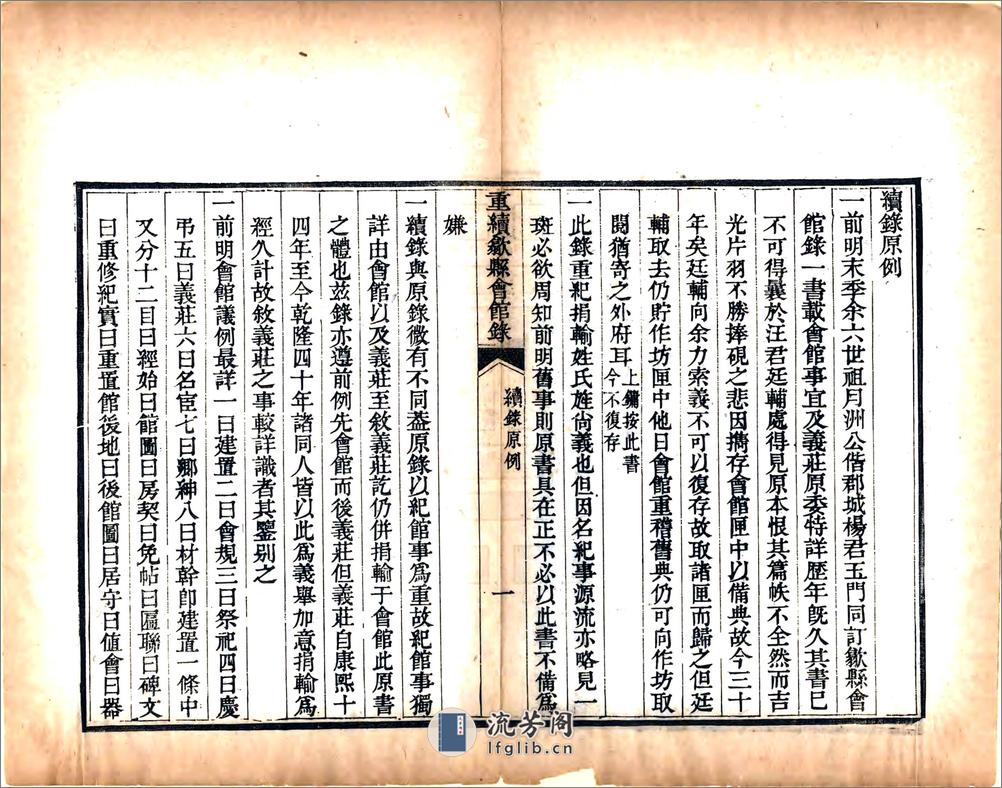 續錄原例
一前明末季余六世祖月洲公偕郡城楊君玉門同訂歙縣會
館錄一書載會館事宜及義莊原委特詳歷年旣久其書已
不可得曩於汪君廷輔處得見原本恨其篇帙不全然而吉
光片羽不勝捧硯之悲因擕存會館匣中以備典故今三十
年矣廷輔向余力索義不可以復存故取諸匣而歸之但廷
輔取去仍貯作坊匣中他日會館重稽舊典仍可向作坊取
閱猶寄之外府耳上鏞按此書今不復存
一此錄重紀捐輸姓氏姓尙義也但因名紀事源流亦略見一
斑必欲周知前明舊事則原書具在正不必以此書不備爲
重續歙縣會館錄
續錄原例
一
嫌
一續錄與原錄微有不同葢原錄以紀館事爲重故紀館事獨
詳由會館以及義莊至敘義莊訖仍併捐輸于會館此原書
之體也兹錄亦遵前例先會館而後義莊但義莊自康熙十
四年至今乾隆四十年諸同人皆以此爲義舉加意捐輸爲
經久計故敘義莊之事較詳識者其鑒别之
一前明會館議例最詳一曰建置二曰會規三曰祭祀四曰慶
弔五曰義莊六曰名宦七曰鄕紳八曰材幹卽建置一條中
又分十二目曰經始曰館圖曰房契曰免帖曰匾聯曰碑文
曰重修紀實曰重置館後地曰後館圖曰居守曰値會曰器
流芳阁
lfglib.cn